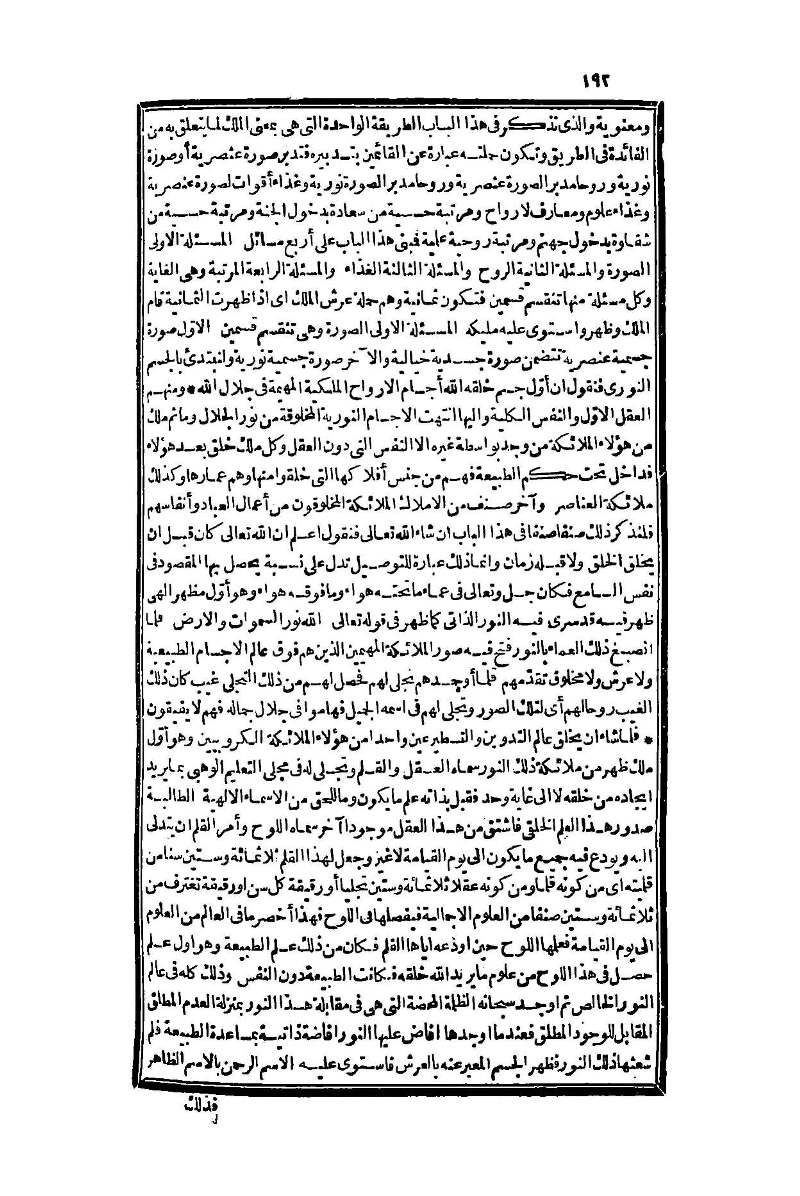 ١٩٢
ومعنوية والذى نذكر فى هذا الباب الطريقة الواحدة التى هى بمعنى الملك لما يتعلق به من
الفائدة فى الطريق وتكون جلته عبارة عن القائمين بتدبيره فتدبر صورة عنصرية أو صورة
نورية وروحا مدبر الصورة عنصرية وروحا مدبر الصورة نورية وغذاء أقوات لصورة عنصرية
وغذاء علوم ومعارف لارواح ومرتبة حسية من سعادة بدخول الجنة ومرتبة حسية من
شقاوة بدخول جهنم ومرتبة روحية علمية فبنى هذا الباب على أربع مسائل المسئلة الاولى
الصورة والمسئلة الثانية الروح والمسئلة الثالثة الغذاء والمسئلة الرابعة المرتبة وهى الغاية
وكل مسئلة منها تنقسم قسمين فتكون ثمانية وهم حملة عرش الملك اى اذا ظهرت الثمانية قام
الملك وظهر واستوى عليه مليكه المسئلة الاولى الصورة وهى تنقسم قسمين الاول صورة
جسمية عنصرية تتضمن صورة جسدية خيالية والآخر صورة جسمية نورية ولنبتدئ بالجسم
النورى فنقول ان أول جسم خلقه الله أجسام الارواح الملكية المهيمة فى جلال الله * ومنهم
العقل الاول والنفس الكلية واليها انتهت الاجسام النورية المخلوقة من نور الجلال وما ثم ملك
من هؤلاء الملائكة من وجد بواسطة غيره الا النفس التى دون العقل وكل ملك خلق بعد هؤلاء
فداخل تحت حكم الطبيعة فهم من جنس أفلاكها التى خلقوا منها وهم عمارها وكذلك
ملائكة العناصر وآخر صنف من الاملاك الملائكة المخلوقون من أعمال العباد وأنفاسهم
فلنذكر ذلك صنفا صنفا فى هذا الباب ان شاء الله تعالى فنقول اعلم ان الله تعالى كان قبل ان
يخلق الخلق ولا قبله زمان وانما ذلك عبارة للتوصيل تدل على نسبة يحصل بها المقصود فى
نفس السامع فكان جل وتعالى فى عماء ما تحته هواء وما فوقه هواء وهو أول مظهر الهى
ظهر فيه قد سرى فيه النور الذاتى كما ظهر فى قوله تعالى الله نور السموات والارض فلما
انصبغ ذلك العماء بالنور فتح فيه صور الملائكة المهيمين الذين هم فوق عالم الاجسام الطبيعية
ولا عرش ولا مخلوق تقدمهم فلما أوجدهم تجلى لهم فحصل لهم من ذلك التجلى غيب كان ذلك
الغيب روحا لهم أى لتلك الصور وتجلى لهم فى اسمه الجميل فهاموا فى جلال جماله فهم لا يفيقون
* فلما شاء ان يخلق عالم التدوين والتسطير عين واحدا من هؤلاء الملائكة الكروبيين وهو أول
ملك ظهر من ملائكة ذلك النور سماه العقل والقلم وتجلى له فى مجلى التعليم الوهبى بما يريد
ايجاده من خلقه لا الى غاية وحد فقبل بذاته علم ما يكون وما للحق من الاسماء الالهية الطالبة
صدور هذا العلم الخلقى فاشتق من هذا العقل موجودا آخر سماه اللوح وأمر القلم ان يتدلى
اليه ويودع فيه جميع ما يكون الى يوم القيامة لا غير وجعل لهذا القلم ثلاثمائة وستين سنا من
قلميته اى من كونه قلما ومن كونه عقلا ثلاثمائة وستين تجليا أو رقيقة كل سن او رقيقة تغترف من
ثلاثمائة وستين صنفا من العلوم الاجمالية فيفصلها فى اللوح فهذا أخصر ما فى العالم من العلوم
الى يوم القيامة فعلمها اللوح حين اودعه اياها القلم فكان من ذلك علم الطبيعة وهو اول علم
حصل فى هذا اللوح من علوم ما يريد الله خلقه فكانت الطبيعة دون النفس وذلك كله فى عالم
النور الخالص ثم اوجد سبحانه الظلمة المحضة التى هى فى مقابلة هذا النور بمنزلة العدم المطلق
المقابل للوجود المطلق فعندما اوجدها افاض عليها النور افاضة ذاتية بمساعدة الطبيعة فلم
شعثها ذلك النور فظهر الجسم المعبر عنه بالعرش فاستوى عليه الاسم الرحمن بالاسم الظاهر
فذلك